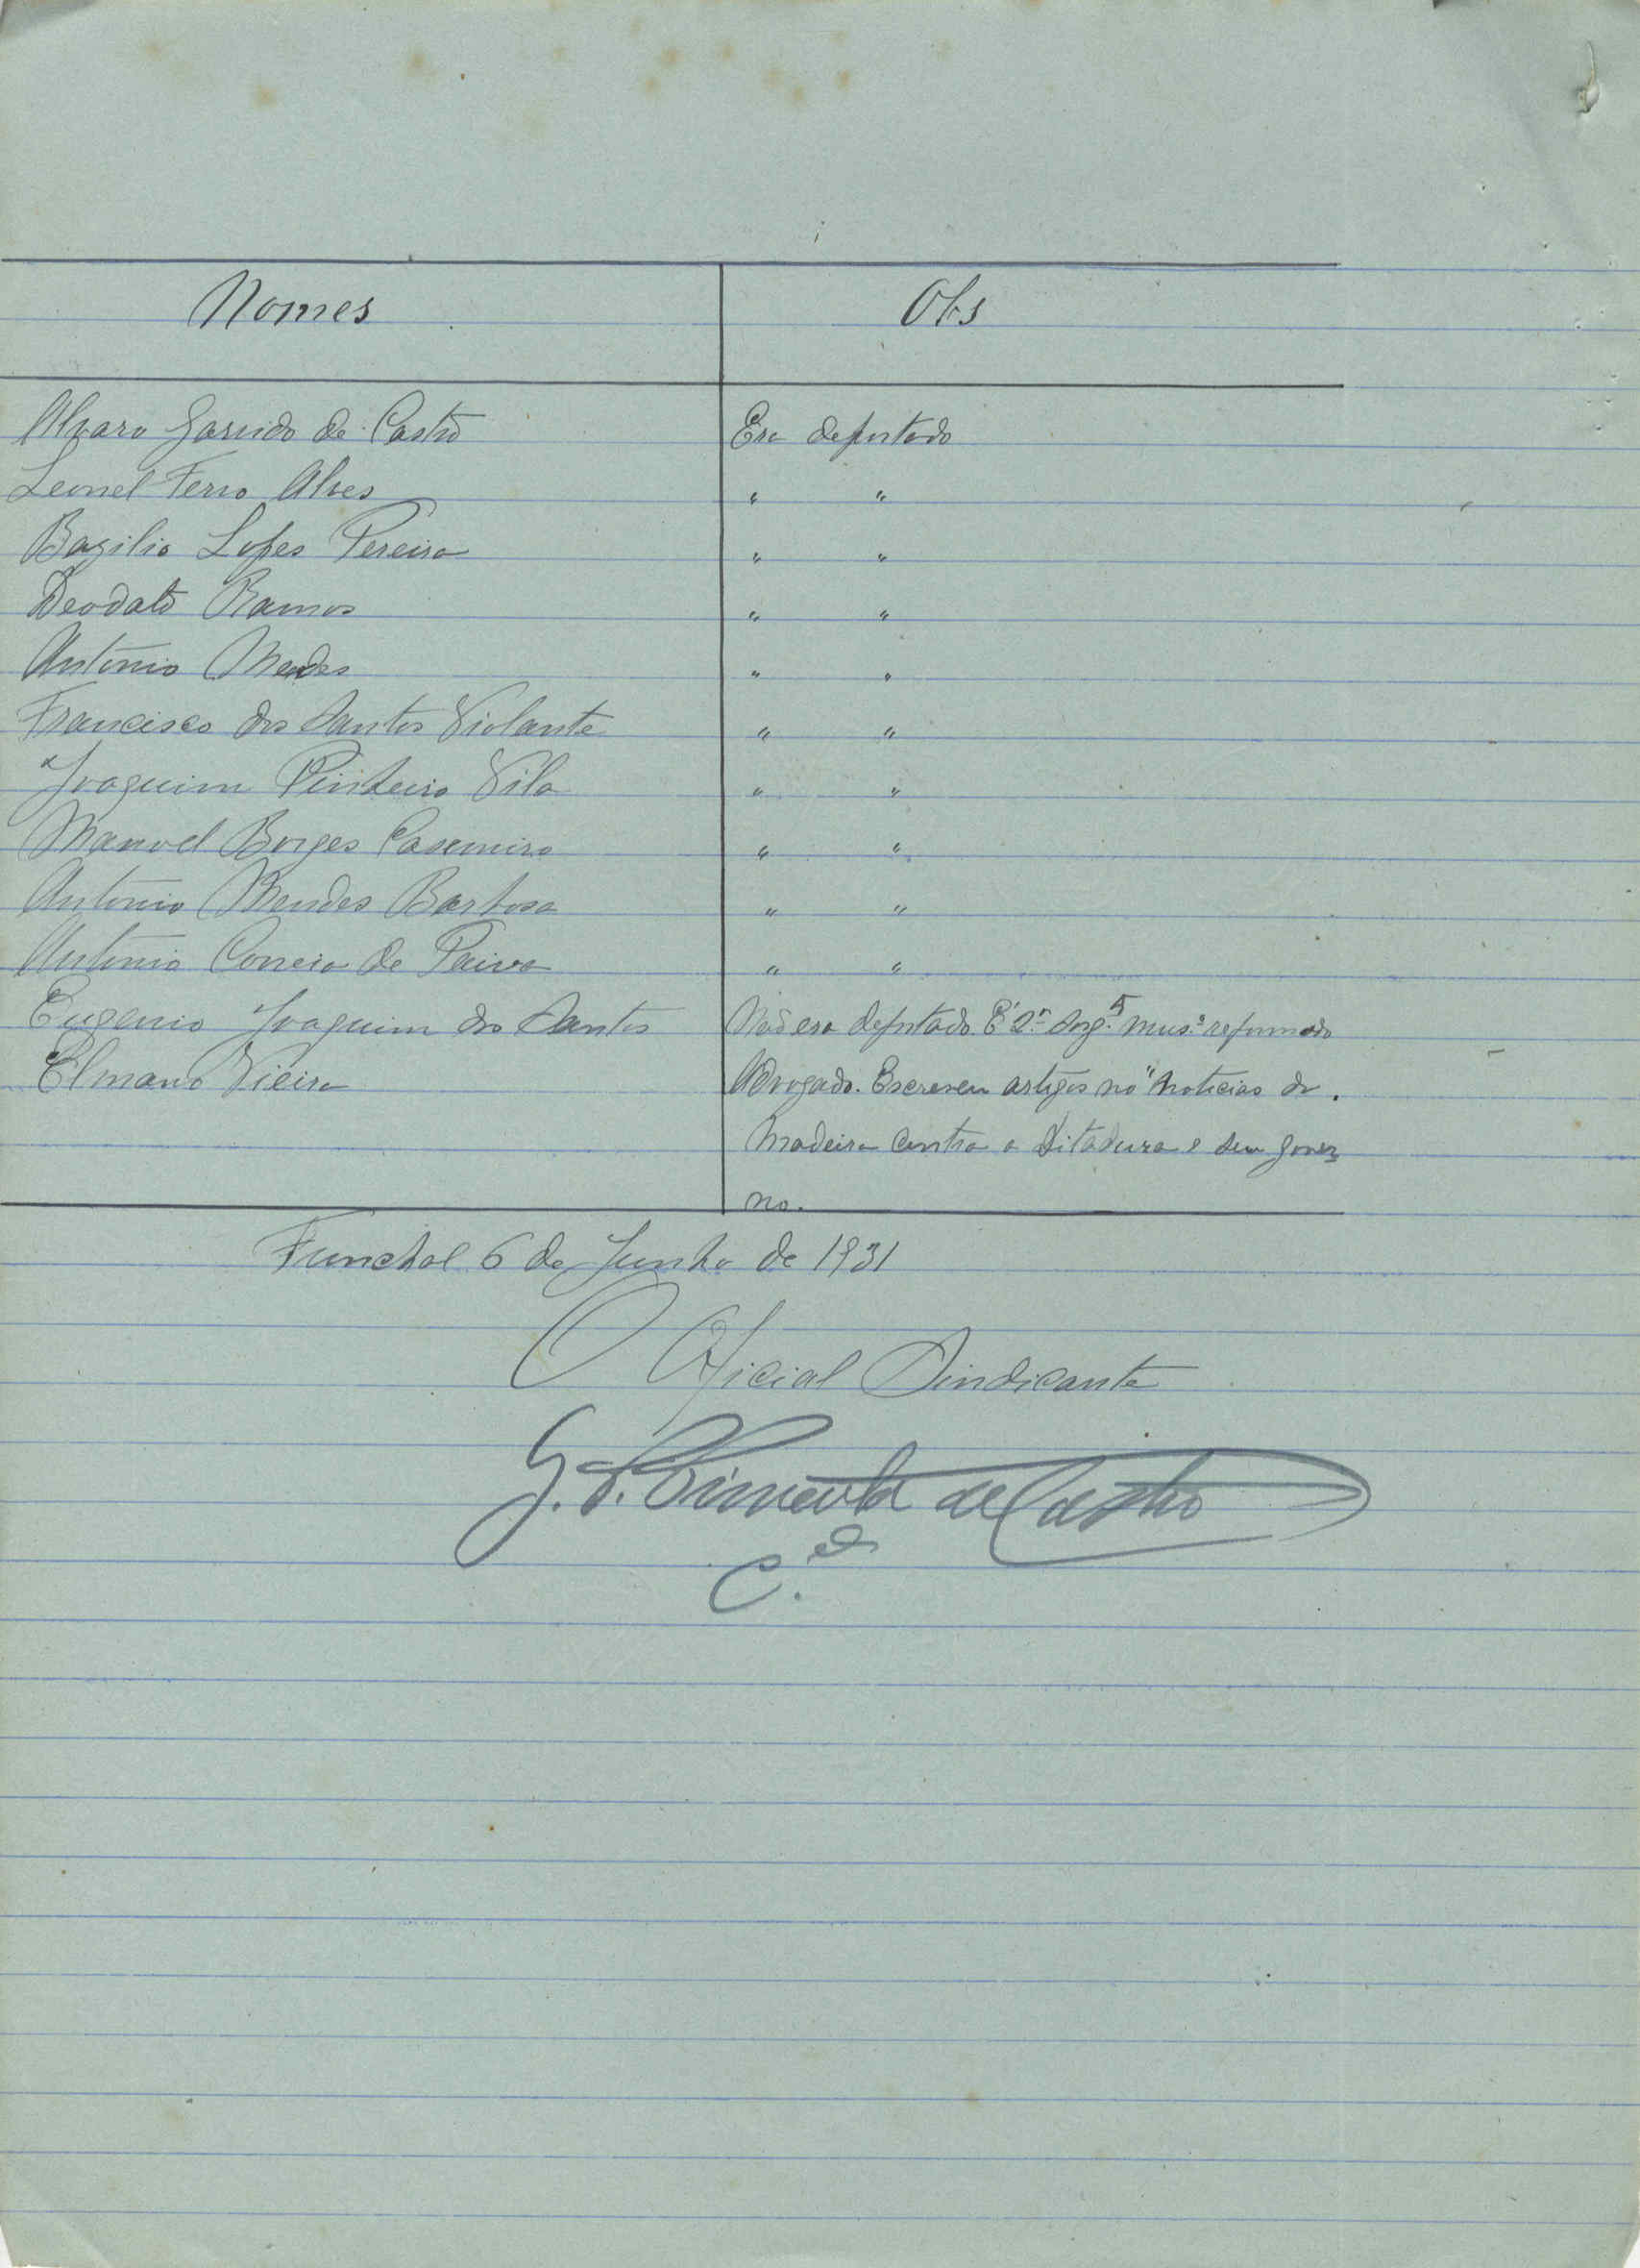 Nomes Obs
Alvaro Garrido de Castro Era deportado
Leonel Ferro Alves " "
Bazilio Lopes Pereira " "
Deodato Ramos " "
António Mendes " "
Francisco dos Santos Violante " "
Joaquim Pinheiro Vila " "
Manoel Borges Casemiro " "
António Mendes Barbosa " "
António Correia de Paiva " "
Eugenio Joaquim dos Santos Não era deportado. É 2º Sarg.to mus.º reformado
Elmano Vieira Advogado. Escreveu artigos no "Noticias da
Madeira contra a Ditadura e seu gover
no.
Funchal 6 de Junho de 1931
O Oficial Sindicante
Pimenta de Castro